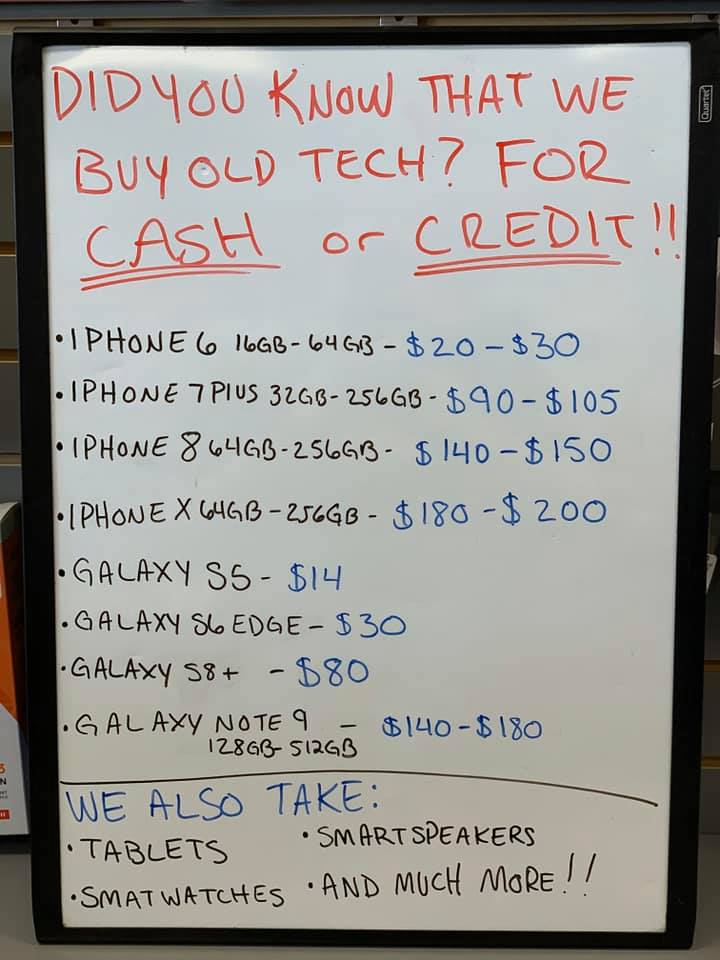 DID YOU KNOW THAT WE
BUY OLD TECH? FOR
CASH or CREDIT!!
•IPHONE 6 16GB-64GB - $20-$30
•IPHONE 7 PlUS 32GB-256GB - $90-$105
•IPHONE 8 64GB-256GB- $140-$150
•IPHONE X 64GB-256GB - $180-$200
•GALAXY S5 - $14
•GALAXY S6 EDGE - $30
•GALAXY S8+ - $80
•GALAXY NOTE 9 - $140-$180
128GB-512GB
WE ALSO TAKE:
•TABLETS
•SMARTSPEAKERS
•SMATWATCHES
•AND MUCH MORE!!
Quartet